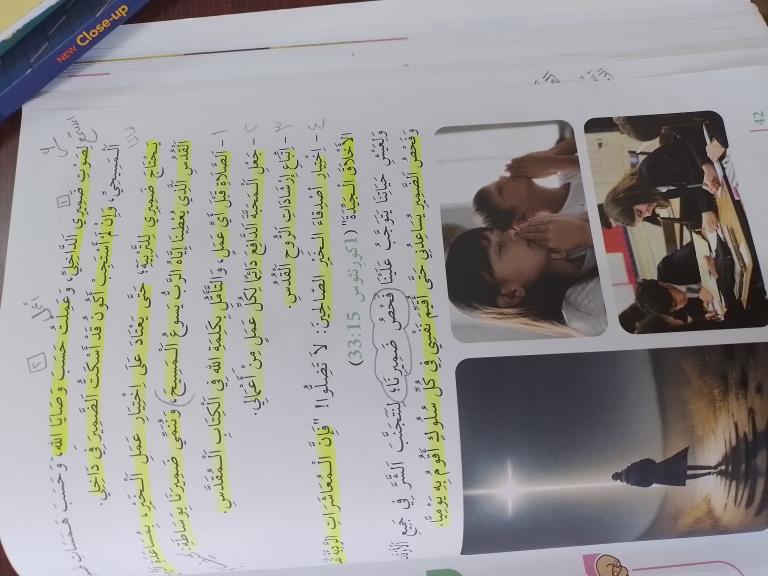 NEW Close-up
لِصَوْتِ ضَمِيرِي الدَّاخِلِيِّ، وَعَمِلْتُ حَسَبَ وَصَايَا اللهِ، وَحَسَبَ هَمَسَاتِ
الْمَسِيحِيِّ، وَإِنْ لَمْ أَسْتَجِبْ أَكُونُ قَدْ أَسْكَتُّ الضَّمِيرَ فِي دَاخِلِي.
يَحْتَاجُ ضَمِيرِي لِلتَّرْبِيَةِ؛ حَتَّى يَعْتَادَ عَلَى اخْتِيَارِ عَمَلِ الْخَيْرِ، بِمُسَاعَدَةِ
الْقُدُسِ الَّذِي يُعْطِينَا إِيَّاهُ الرَّبُّ يَسُوعُ الْمَسِيحُ، وَنُنَمِّي ضَمِيرَنَا بِوَسَاطَةِ:
١- الصَّلَاةِ قَبْلَ أَيِّ عَمَلٍ، وَالتَّأَمُّلِ بِكَلِمَةِ اللهِ فِي الْكِتَابِ الْمُقَدَّسِ.
٢- جَعْلِ الْمَحَبَّةِ الدَّافِعَ دَائِمًا لِكُلِّ عَمَلٍ مِنْ أَعْمَالِي.
٣- اتِّبَاعِ إِرْشَادَاتِ الرُّوحِ الْقُدُسِ.
٤- اخْتِيَارِ أَصْدِقَاءِ الْخَيْرِ الصَّالِحِينَ: لَا تَضِلُّوا! "فَإِنَّ الْمُعَاشَرَاتِ الرَّدِيَّةَ
الْأَخْلَاقَ الْجَيِّدَةَ" (1كورنثوس 33:15)
وَلِعَيْشِ حَيَاتِنَا يَتَوَجَّبُ عَلَيْنَا فَحْصُ ضَمِيرِنَا؛ لِنَتَجَنَّبَ الشَّرَّ فِي جَمِيعِ
وَفَحْصُ الضَّمِيرِ يُسَاعِدُنِي حَتَّى أُقَيِّمَ نَفْسِي فِي كُلِّ سُلُوكٍ أَقُومُ بِهِ يَوْمِيًّا.
42